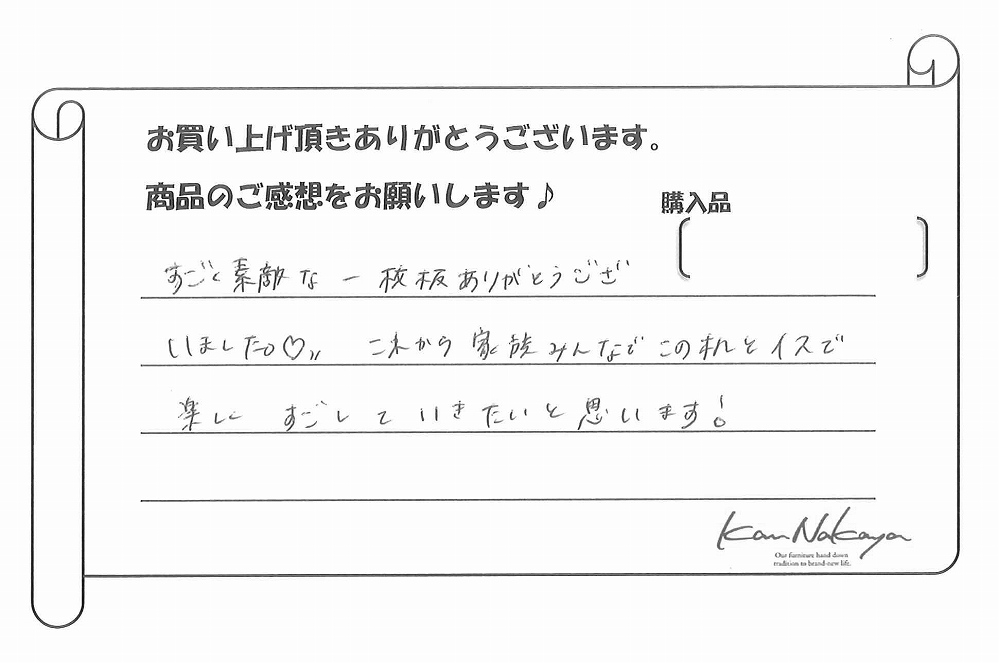 お買い上げ頂きありがとうございます。
商品のご感想をお願いします♪
購入品
すごく素敵な一枚板ありがとうござ
いました♡〃 これから家族みんなでこの机とイスで
楽しく すごしていきたいと思います!
Kan Nakaya
Our furniture hand down
tradition to brand-new life.